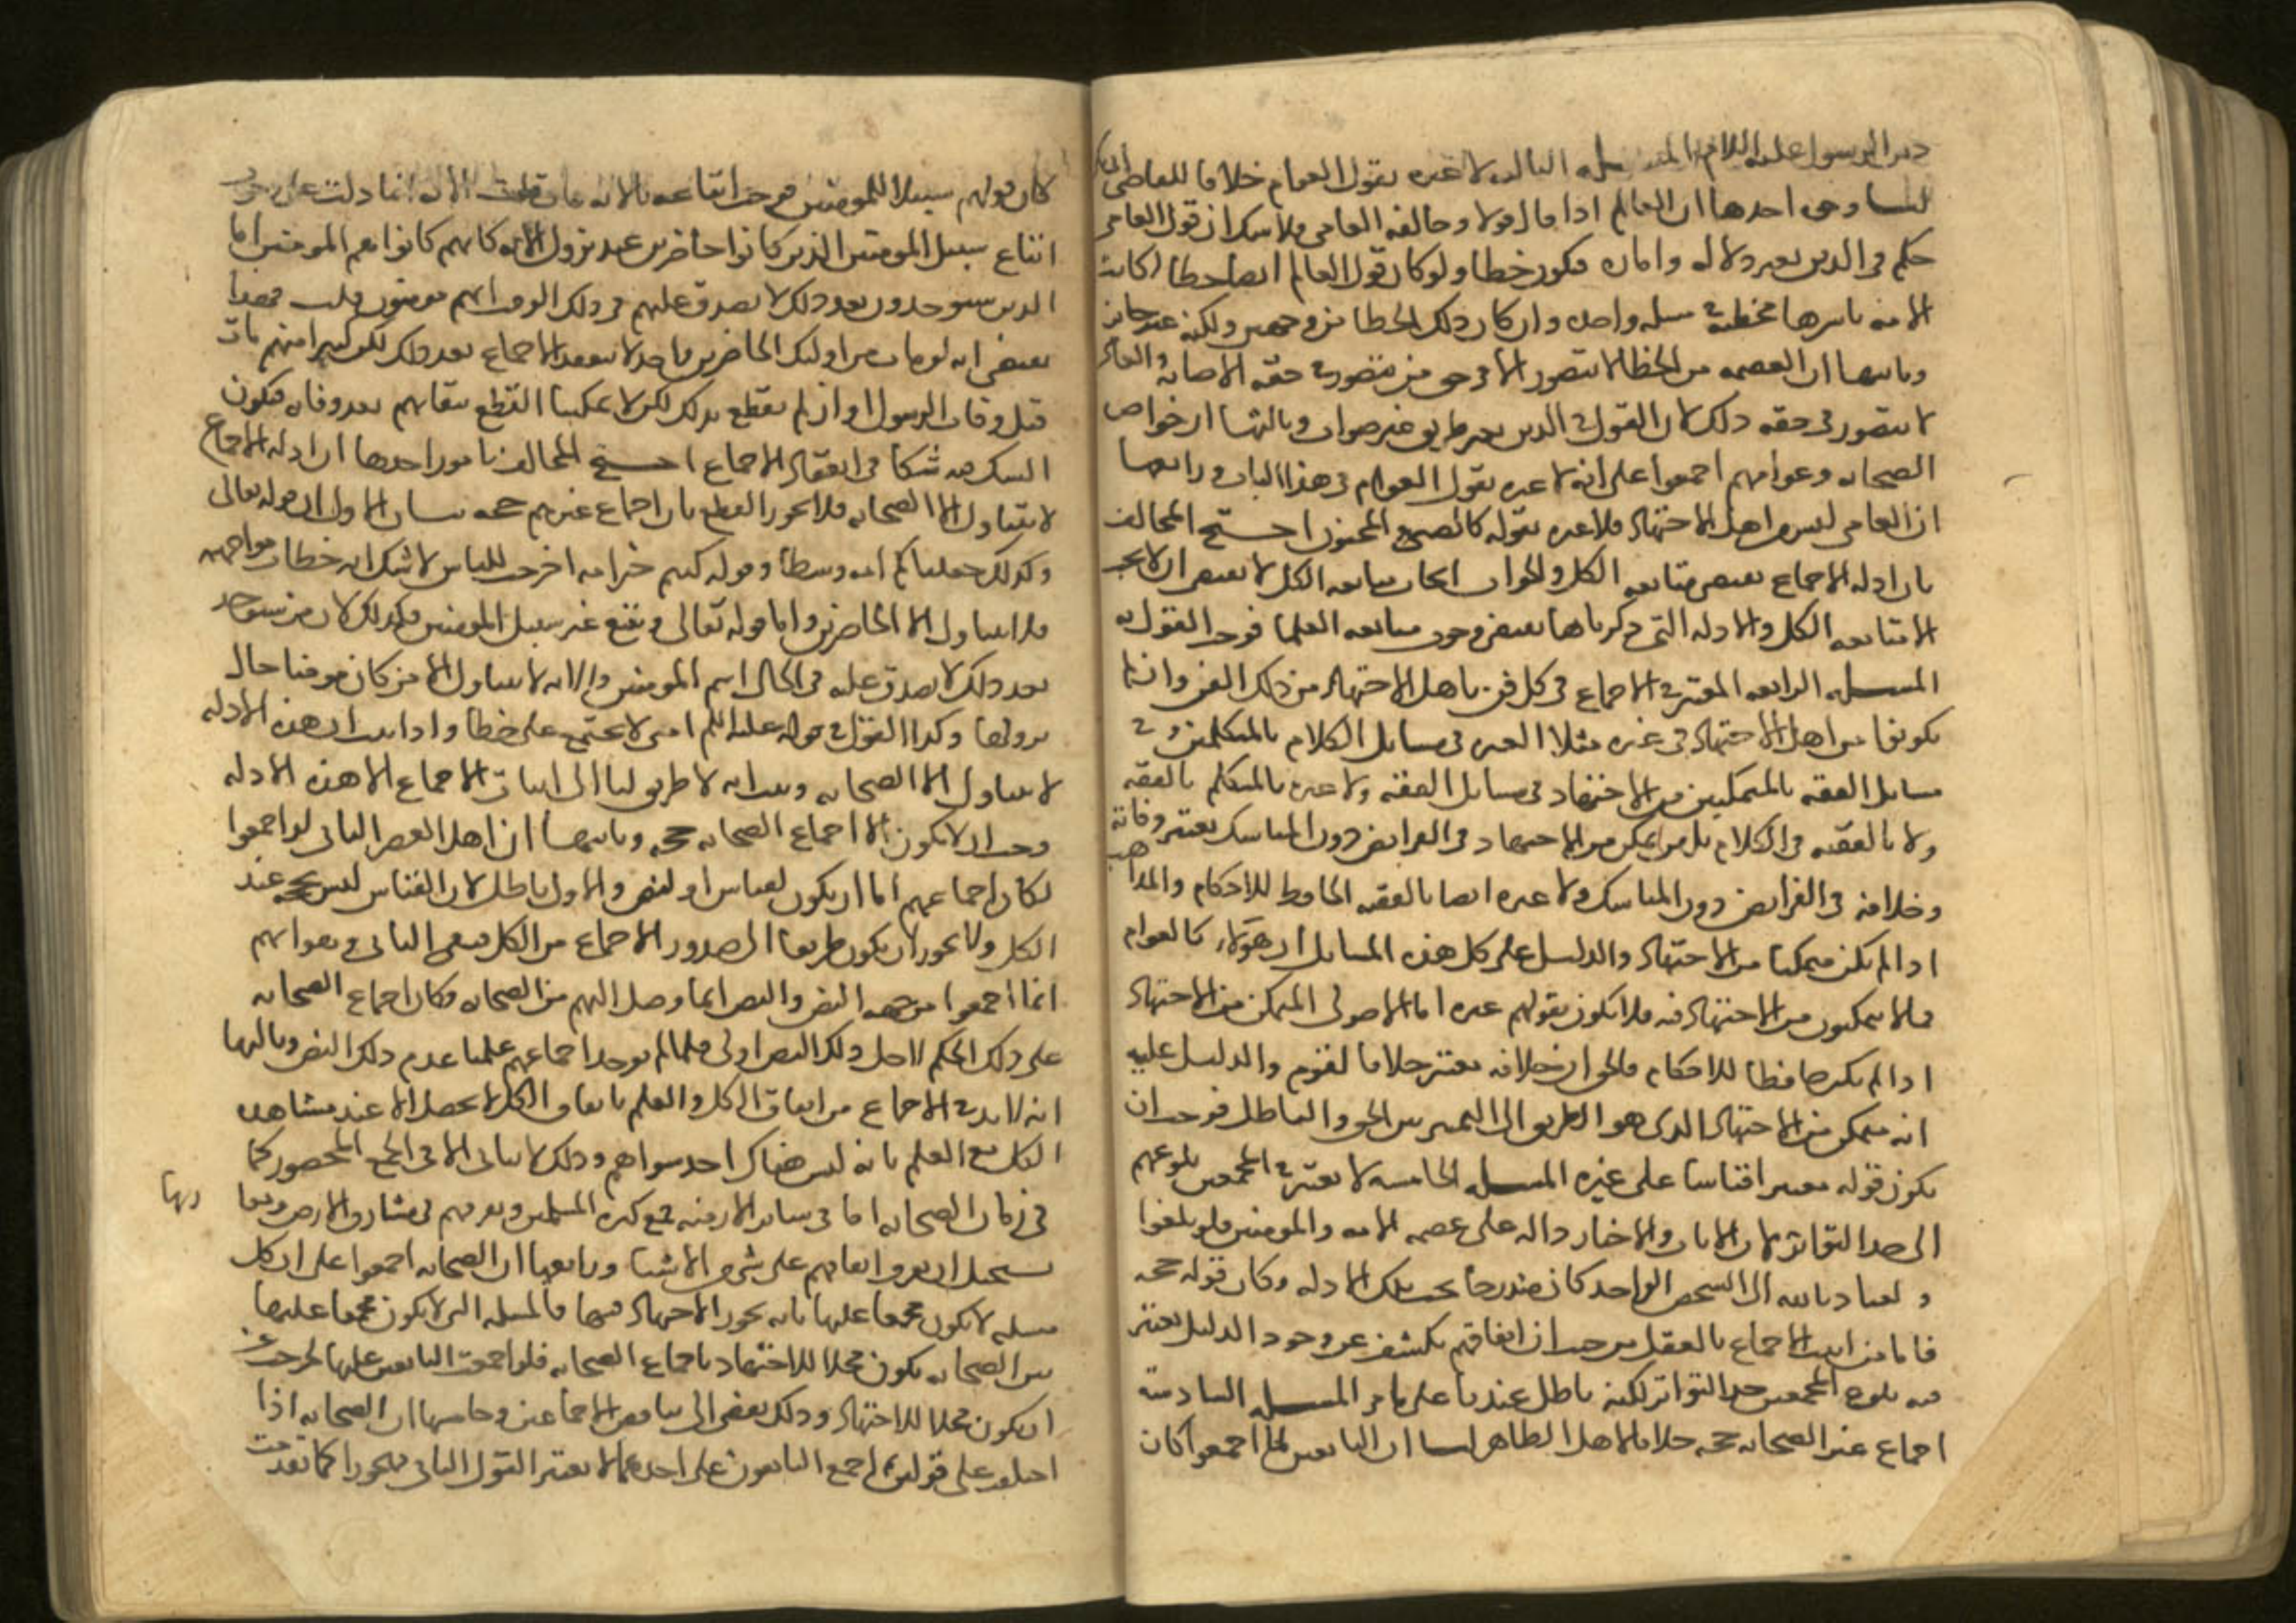 دين الرسول عليه السلام المسله الثالثه لا عبره بقول العوام خلافا للقاضي ابي بكر
لنا وجوه احدها ان العالم اذا قال قولا وخالفه العامي فلا شك ان قول العامي
حكم في الدين بغير دلاله واماره فيكون خطا ولو كان قول العالم ايضا خطا لكانت
الامه باسرها مخطئة في مسله واحده وان كان ذلك الخطا من وجهين ولكنه غير جائز
وثانيها ان العصمه من الخطا لا تتصور الا في حق من تتصور في حقه الاصابه والعامي
لا يتصور في حقه ذلك لان القول في الدين بغير طريق غير صواب وثالثها ان خواص
الصحابه وعوامهم اجمعوا على انه لا عبره بقول العوام في هذا الباب ورابعها
ان العامي ليس من اهل الاجتهاد فلا عبره بقوله كالصبي والمجنون احتج المخالف
بان ادله الاجماع تقتضي متابعه الكل والجواب ايجاب متابعه الكل لا يقتضي ان لا يجب
الا متابعه الكل والادله التي ذكرناها تقتضي وجوب متابعه العلما فوجب القول به
المسله الرابعه المعتبر في الاجماع في كل فن باهل الاجتهاد من ذلك الفن وان لم
يكونوا من اهل الاجتهاد في غيره مثلا العبره في مسايل الكلام بالمتكلمين وفي
مسايل الفقه بالمتمكنين من الاجتهاد في مسايل الفقه ولا عبره بالمتكلم بالفقه
ولا بالفقيه في الكلام بل من يتمكن من الاجتهاد في الفرايض دون المناسك يعتبر وفاقه
وخلافه في الفرايض دون المناسك ولا عبره ايضا بالفقيه الحافظ للاحكام والمذاهب
اذا لم يكن متمكنا من الاجتهاد والدليل على كل هذه المسايل ان هؤلاء كالعوام
فيما لا يتمكنون من الاجتهاد فيه فلا يكون بقولهم عبره اما الاصولي المتمكن من الاجتهاد
اذا لم يكن حافظا للاحكام فالحق ان خلافه معتبر خلافا لقوم والدليل عليه
انه متمكن من الاجتهاد الذي هو الطريق الى التمييز بين الحق والباطل فوجب ان
يكون قوله معتبرا قياسا على غيره المسله الخامسه لا يعتبر في المجمعين بلوغهم
الى حد التواتر لان الايات والاخبار داله على عصمه الامه والمومنين فلو بلغوا
والعياذ بالله الى الشخص الواحد كان مندرجا تحت تلك الادله وكان قوله حجه
فاما من اثبت الاجماع بالعقل من حيث ان اتفاقهم يكشف عن وجود الدليل يعتبر
فيه بلوغ المجمعين حد التواتر لكنه باطل عندنا على ما مر المسله السادسة
اجماع غير الصحابه حجه خلافا لاهل الظاهر لنا ان التابعين لما اجمعوا كان
كان قولهم سبيلا للمومنين فوجب اتباعه بالايه فان قلت الايه انما دلت على وجوب
اتباع سبيل المومنين الذين كانوا حاضرين عند نزول الايه كانهم كانوا هم المومنين اما
الذين سيوجدون بعد ذلك لا يصدق عليهم في ذلك الوقت انهم مومنون قلت فهذا
يقتضي انه لو مات من اوليك الحاضرين واحد لا ينعقد الاجماع بعد ذلك لكن كثيرا منهم مات
قبل وفاه الرسول او ان لم نقطع بذلك لكن لا يمكننا القطع ببقايهم بعد وفاته فيكون
الشك فيه شكا في انعقاد الاجماع احتج المخالف بامور احدها ان ادله الاجماع
لا تتناول الا الصحابه فلا يجوز القطع بان اجماع غيرهم حجه بيان الاول ان قوله تعالى
وكذلك جعلناكم امه وسطا وقوله كنتم خير امه اخرجت للناس لا شك انه خطاب مواجهه
فلا يتناول الا الحاضرين واما قوله تعالى ويتبع غير سبيل المومنين فكذلك لان من سيوجد
بعد ذلك لا يصدق عليه في الحال اسم المومنين والايه لا تتناول الا من كان مومنا حال
نزولها وكذا القول في قوله عليه السلم امتي لا تجتمع على خطا واذا ثبت ان هذه الادله
لا تتناول الا الصحابه وثبت انه لا طريق لنا الى اثبات الاجماع الا هذه الادله
وجب ان لا يكون الا اجماع الصحابه حجه وثانيها ان اهل العصر الثاني لو اجمعوا
لكان اجماعهم اما ان يكون لقياس او لنص والاول باطل لان القياس ليس بحجه عند
الكل ولا يجوز ان يكون طريقا الى صدور الاجماع من الكل فبقي الثاني وهو انهم
انما اجمعوا من جهه النص والنص انما وصل اليهم من الصحابه وكان اجماع الصحابه
على ذلك الحكم لاجل ذلك النص اولى فلما لم يوجد اجماعهم علمنا عدم ذلك النص وثالثها
انه لا بد في الاجماع من اتفاق الكل والعلم باتفاق الكل لا يحصل الا عند مشاهده
الكل مع العلم بانه ليس هناك احد سواهم وذلك لا يتاتى الا في الجمع المحصور كما
في زمان الصحابه اما في ساير الازمنه مع كثره المسلمين وتفرقهم في مشارق الارض ومغا
ربها
يستحيل ان يعرف اتفاقهم على شي من الاشيا ورابعها ان الصحابه اجمعوا على ان كل
مسله لا يكون مجمعا عليها بانه يجوز الاجتهاد فيها فالمسله التي لا يكون مجمعا عليها
بين الصحابه يكون محلا للاجتهاد باجماع الصحابه فلو اجمعت التابعين عليها لخرجت عن
ان يكون محلا للاجتهاد وذلك يفضي الى تناقض الاجماعين وخامسها ان الصحابه اذا
اختلفت على قولين ثم اجمع التابعون على احدهما لا يصير القول الثاني مهجورا كما تقدمت